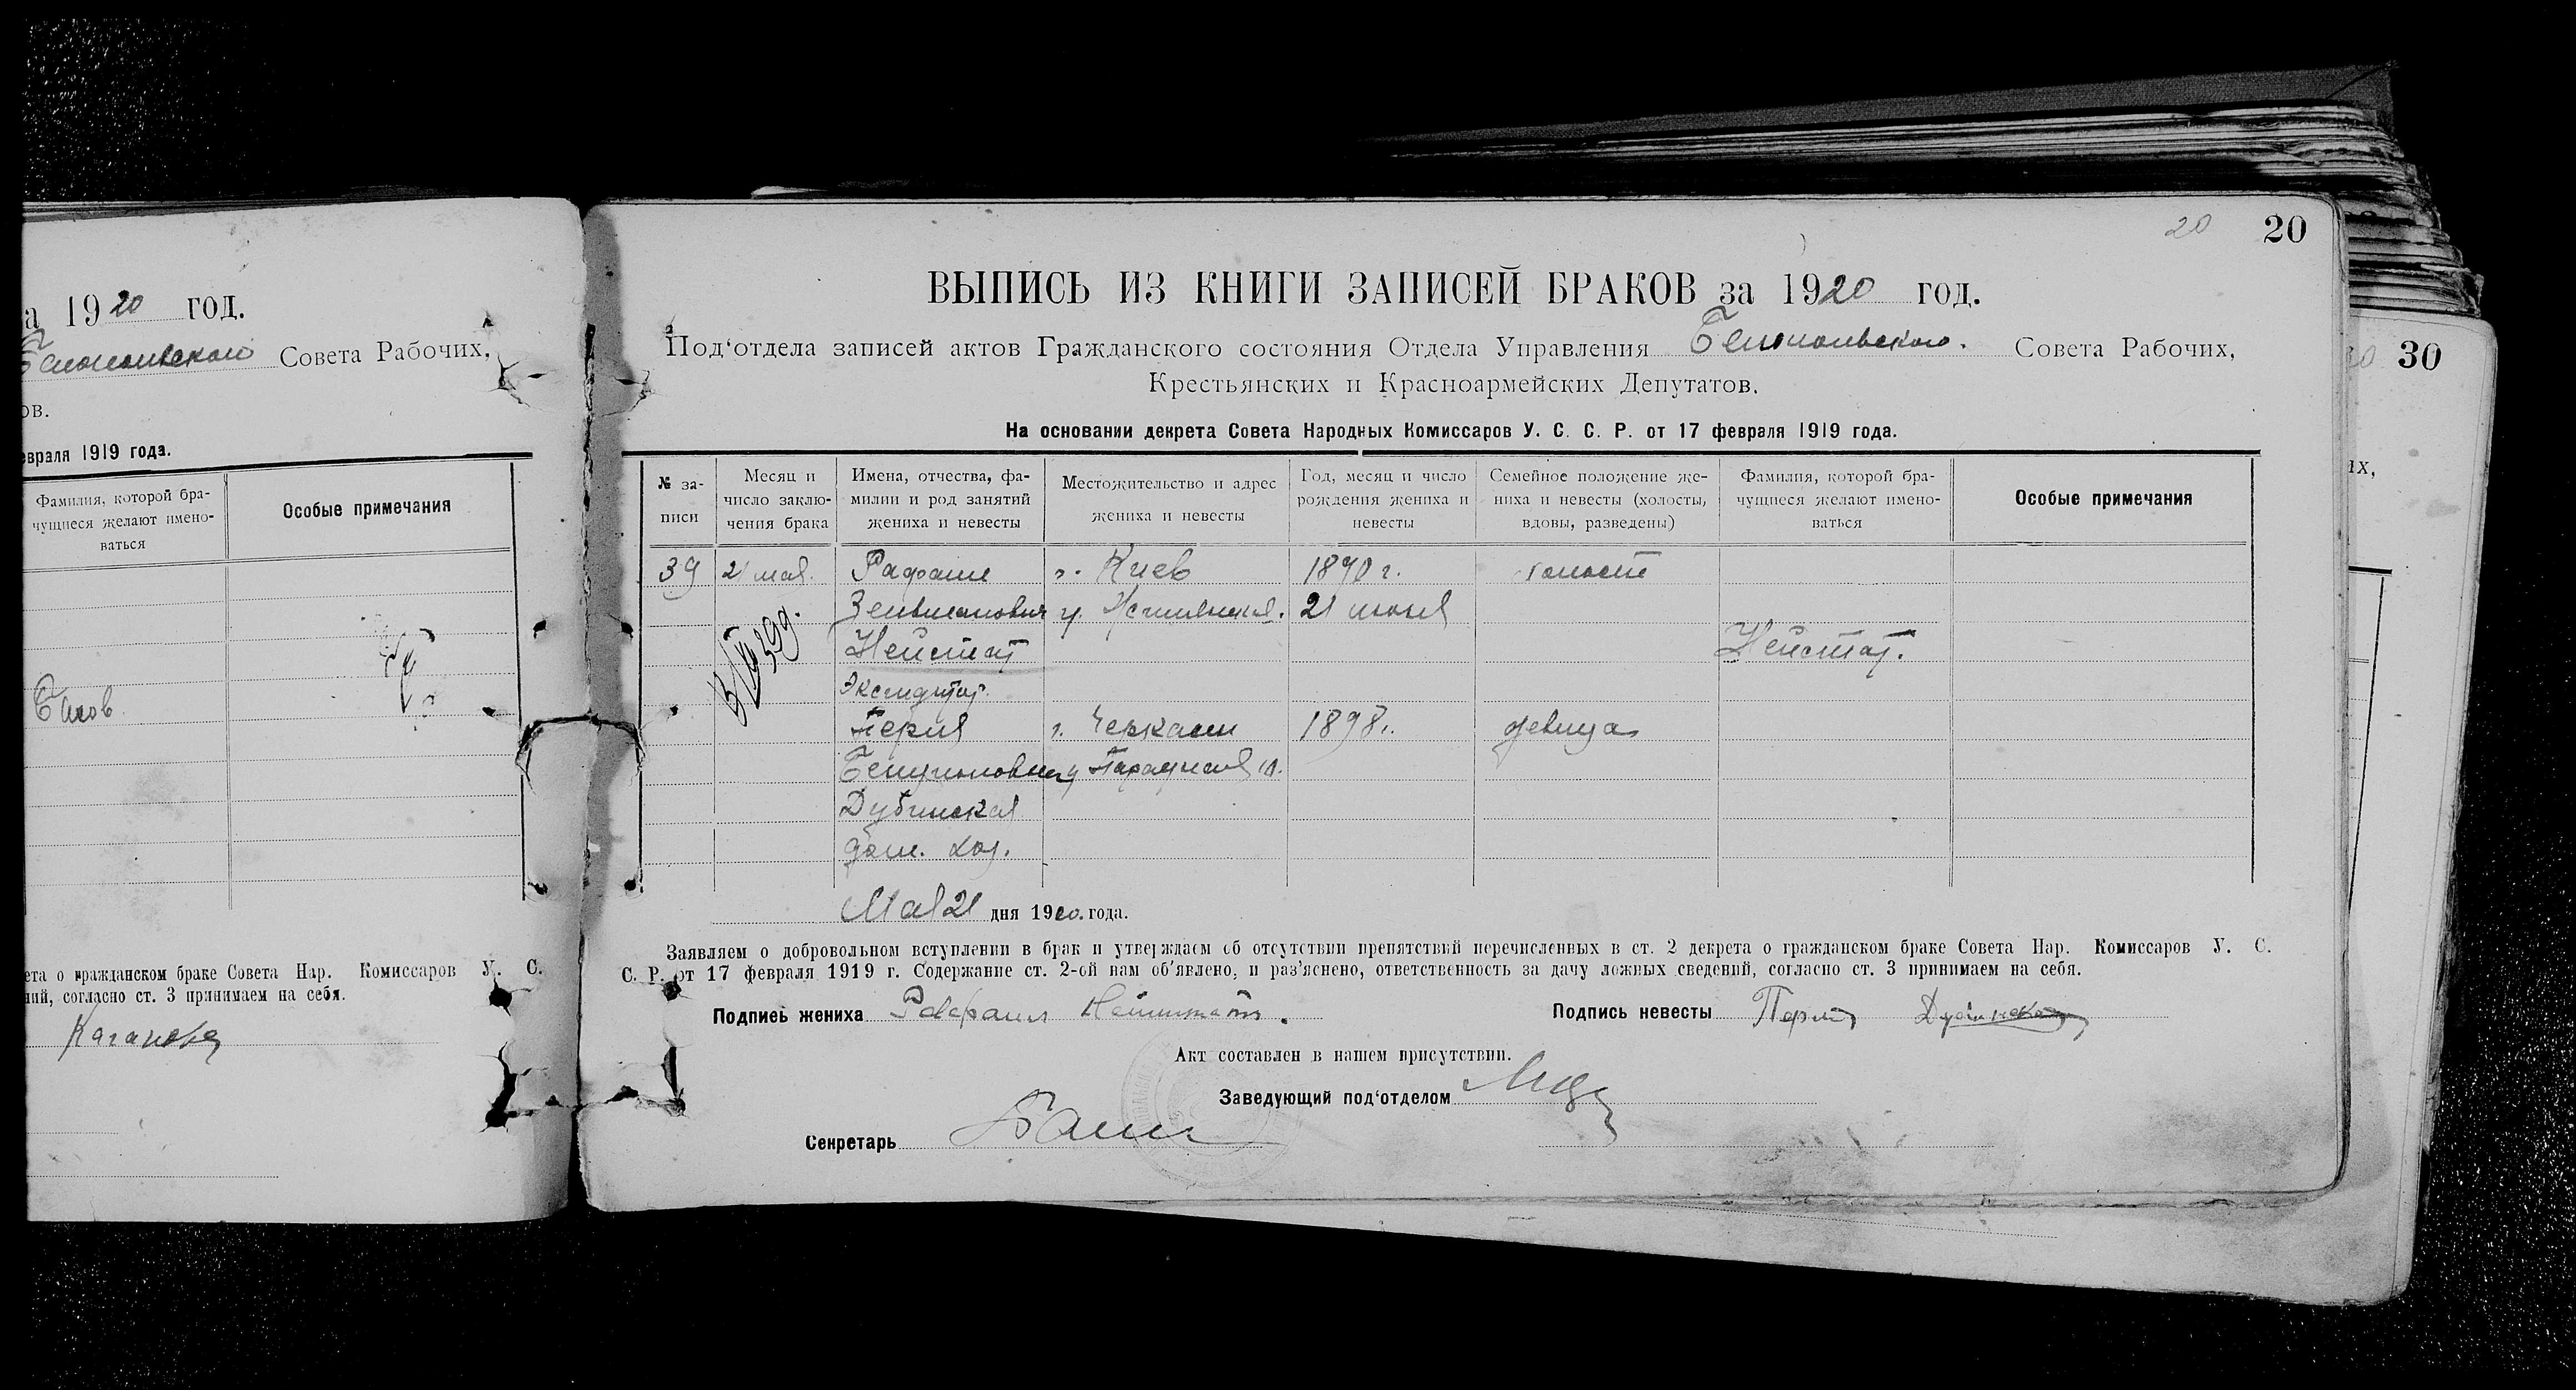 а 1920 год.
Совета Рабочих,
ов.
евраля 1919 года.
Фамилия, которой бра-
чущиеся желают имено-
ваться
Особые примечания
ета о гражданском браке Совета Нар. Комиссаров У. С.
ний, согласно ст. 3 принимаем на себя.
20 20
ВЫПИСЬ ИЗ КНИГИ ЗАПИСЕЙ БРАКОВ за 1920 год.
Под‘отдела записей актов Гражданского состояния Отдела Управления Совета Рабочих,
Крестьянских и Красноармейских Депутатов.
На основании декрета Совета Народных Комиссаров У. С. С. Р. от 17 февраля 1919 года.
№ за-
писи
Месяц и
число заклю-
чения брака
Имена, отчества, фа-
милии и род занятий
жениха и невесты
Местожительство и адрес
жениха и невесты
Год, месяц и число
рождения жениха и
невесты
Семейное положение же-
ниха и невесты (холосты,
вдовы, разведены)
Фамилия, которой бра-
чущиеся желают имено-
ваться
Особые примечания
39 21 мая. Рафаил г. Киев 1890 г. холост
21 июня
Нейштат Нейштат.
Перля г. Черкассы 1898 г. девица
Дубинская
дом. хоз.
Мая 21 дня 1920. года.
Заявляем о добровольном вступлении в брак и утверждаем об отсутствии препятствий перечисленных в ст. 2 декрета о гражданском браке Совета Нар. Комиссаров У. С.
С. Р. от 17 февраля 1919 г. Содержание ст. 2-ой нам об’явлено, и раз’яснено, ответственность за дачу ложных сведений, согласно ст. 3 принимаем на себя.
Подпись жениха Рафаил Нейштат. Подпись невесты Перля Дубинская
Акт составлен в нашем присутствии.
Заведующий под‘отделом
Секретарь
30
их,